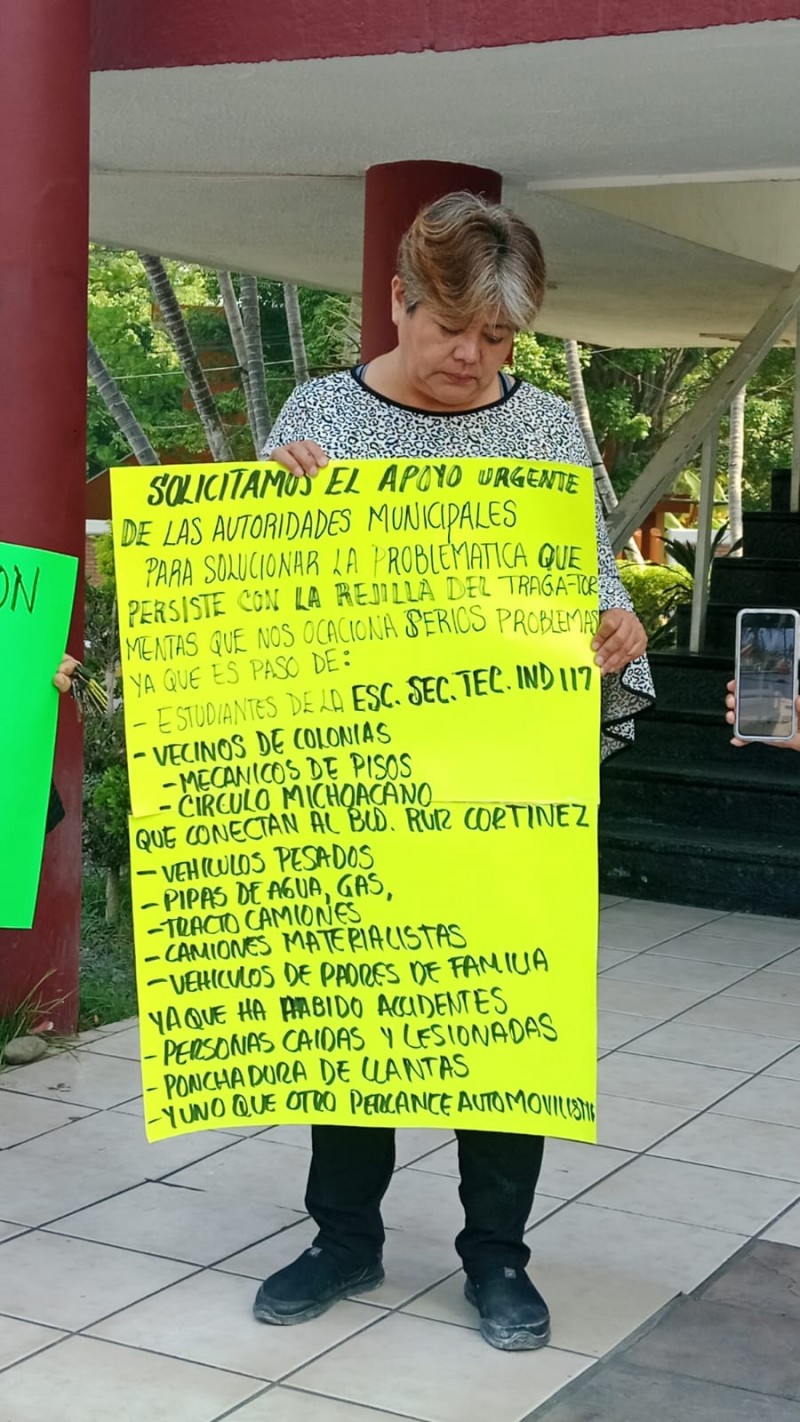 SOLICITAMOS EL APOYO URGENTE
DE LAS AUTORIDADES MUNICIPALES
PARA SOLUCIONAR LA PROBLEMATICA QUE
PERSISTE CON LA REJILLA DEL TRAGA-TOR
MENTAS QUE NOS OCACIONA SERIOS PROBLEMAS
YA QUE ES PASO DE:
- ESTUDIANTES DE LA ESC. SEC. TEC. IND 117
- VECINOS DE COLONIAS
- MECANICOS DE PISOS
- CIRCULO MICHOACANO
QUE CONECTAN AL BLD. RUIZ CORTINEZ
- VEHICULOS PESADOS
- PIPAS DE AGUA, GAS,
- TRACTO CAMIONES
- CAMIONES MATERIALISTAS
- VEHICULOS DE PADRES DE FAMILIA
YA QUE HA HABIDO ACCIDENTES
- PERSONAS CAIDAS Y LESIONADAS
- PONCHADURA DE LLANTAS
- Y UNO QUE OTRO PERCANCE AUTOMOVILISTIC
ON